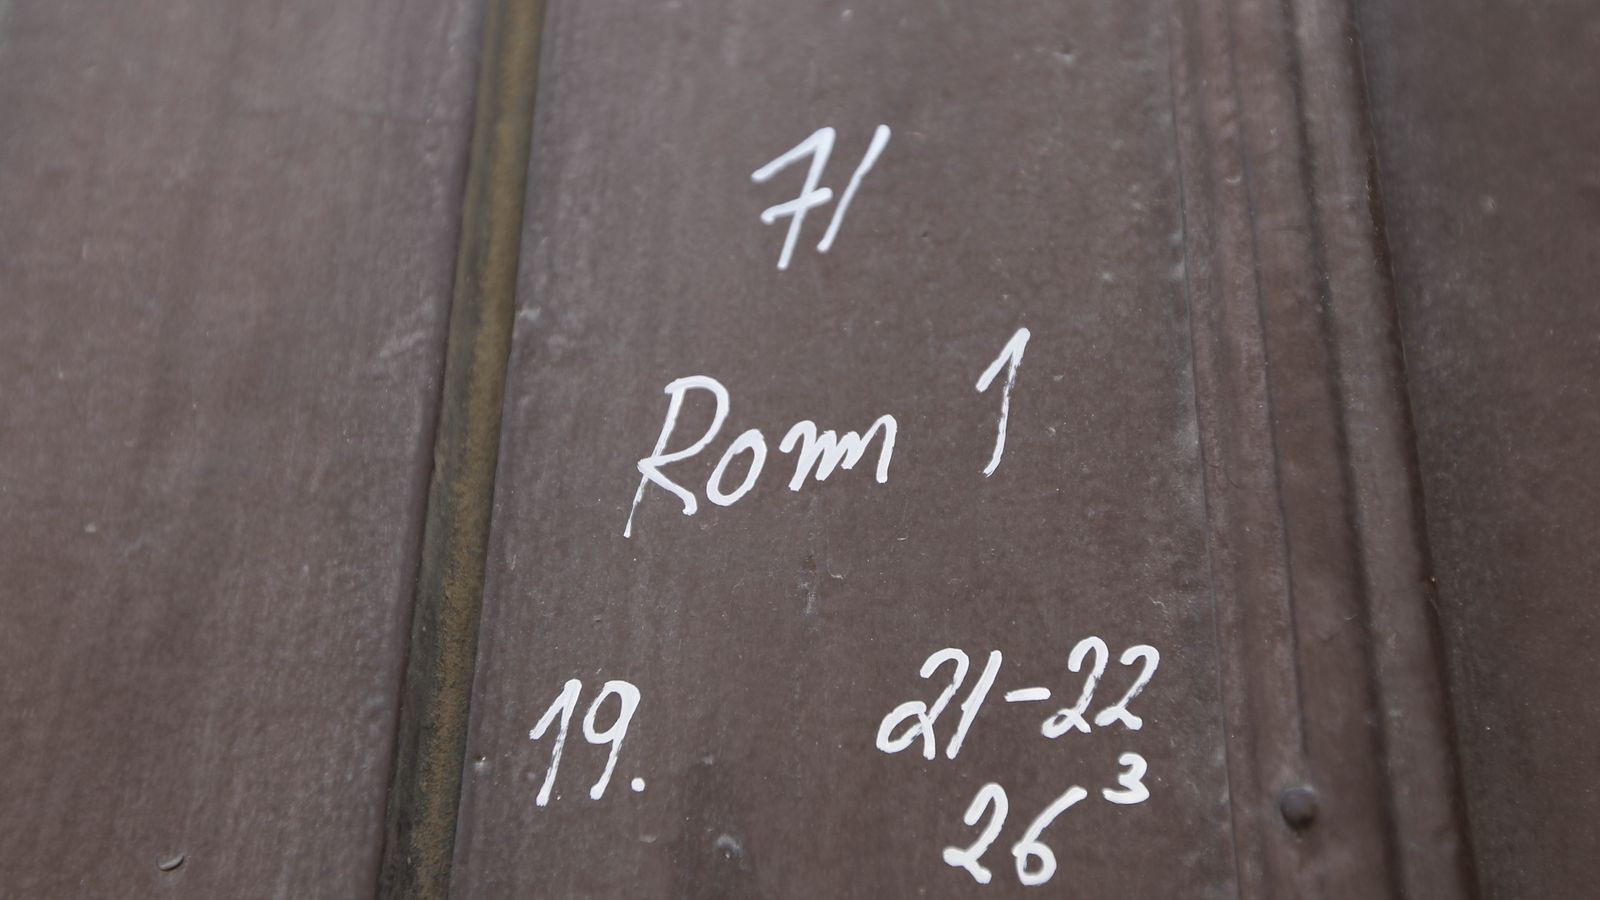 71
Rom 1
19. 21-22
26³